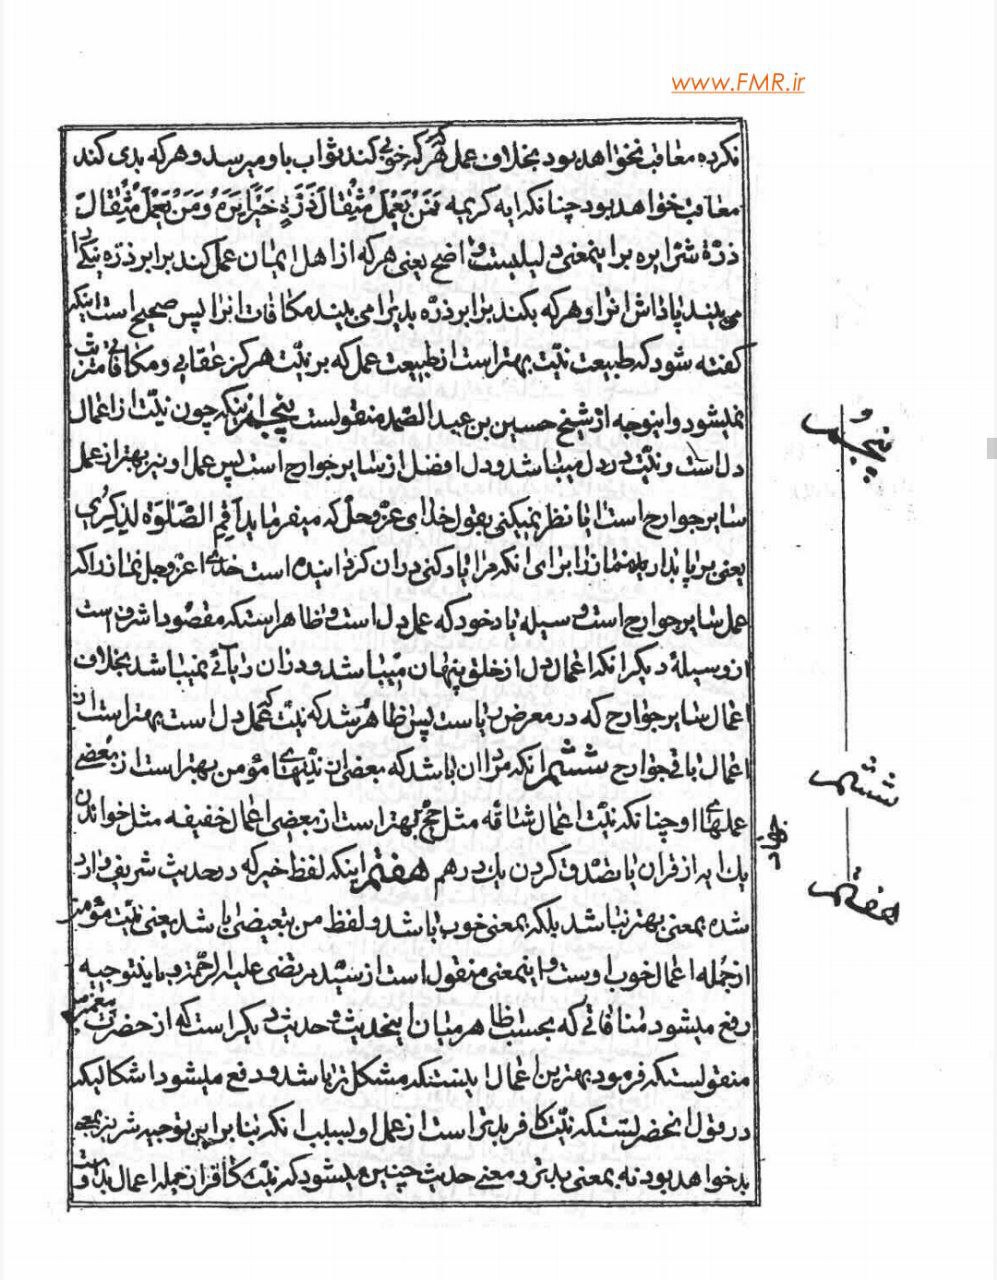 www.FMR.ir
نکرده معاقب نخواهد بود بخلاف عمل که هرکه خوبی کند ثواب باو میرسد و هرکه بدی کند
معاقب خواهد بود چنانکه ایه کریمه فَمَن یَعمَل مِثقالَ ذَرَّةٍ خَیراً یَرَه وَ مَن یَعمَل مِثقالَ
ذرة شرا یره برا ینمعنی دلیلیست واضح یعنی هرکه از اهل ایمان عمل کند برابر ذره نیکی را
می بیند پاداش انرا و هرکه بکند برابر ذره بدیرا می بیند مکافات انرا پس صحیح است اینکه
کفته شود که طبیعت نیّت بهتر است از طبیعت عمل که بر نیّت هرکز عقابی و مکافاتی مترتب
نمیشود و اینوجه از شیخ حسین بن عبدالصمد منقولست پنجم اینکه چون نیّت از اعمال
دل است و نیّت در دل میباشد و دل افضل از سایر جوارح است پس عمل او نیز بهتر از عمل
سایر جوارح است ایا نظر نمیکنی بقول خدای عز و جل که میفرماید اَقِمِ الصَّلوٰةَ لِذِکری
یعنی بر پا بدارید نماز را برای انکه مرا یاد کنی در ان کردانیده است خدای عز و جل نماز را که
عمل سایر جوارح است وسیله یاد خود که عمل دل است و ظاهر استکه مقصود اشرف است
از وسیله دیکر انکه اعمال دل از خلق پنهان میباشد و در ان ریائی نمیباشد بخلاف
اعمال سایر جوارح که در معرض ریاست پس ظاهر شد که نیّت که عمل دل است بهتر است از
اعمال باقی جوارح ششم انکه مراد ان باشد که بعضی از نیّتهای مؤمن بهتر است از بعضی
عملهای او چنانکه نیّت اعمال شاقه مثل حج بهتر است از بعضی اعمال خفیفه مثل خواندن
یک ایه از قران یا تصدق کردن یک درهم هفتم اینکه لفظ خیر که در حدیث شریف وارد
شده بمعنی بهتر نباشد بلکه بمعنی خوب باشد و لفظ من تبعیضی باشد یعنی نیّت مؤمن
از جمله اعمال خوب اوست و اینمعنی منقول است از سید مرتضی علیه الرحمة و باینتوجیه
رفع میشود منافاتی که بحسب ظاهر میان اینحدیث و حدیث دیکر است که از حضرت پیغمبر
منقولستکه فرمود بهترین اعمال اینستکه مشکل تر باشد و دفع میشود اشکالیکه
در قول انحضرتستکه نیّت کافر بدتر است از عمل او بسبب انکه بنا بر این توجیه شر بمعنی
بد خواهد بود نه بمعنی بدتر و معنی حدیث چنین میشود که نیّت کافر از جمله اعمال بد اوست
پنجم
ششم
جهاد
هفتم